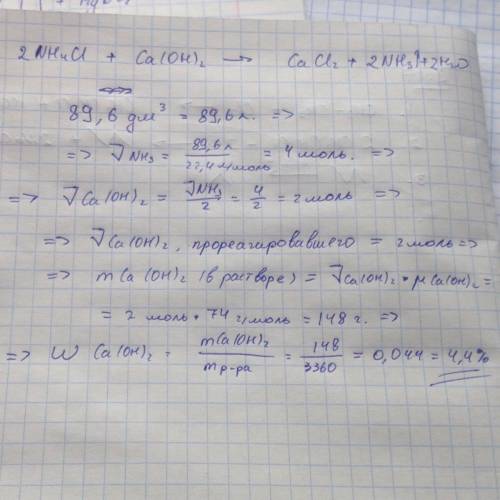 2NH₄Cl + Ca(OH)₂ → CaCl₂ + 2NH₃↑+2H₂O
89,6 дм³ = 89,6 л. =>
=> ν NH₃ = 89,6 л / 22,4 л/моль = 4 моль. =>
=> ν Ca(OH)₂ = νNH₃ / 2 = 4 / 2 = 2 моль =>
=> ν Ca(OH)₂, прореагировавшего = 2 моль =>
=> m Ca(OH)₂ (в растворе) = ν Ca(OH)₂ • μ Ca(OH)₂ =
= 2 моль • 74 г/моль = 148 г. =>
=> W Ca(OH)₂ = mCa(OH)₂ / m р-ра = 148 / 3360 = 0,044 = 4,4%